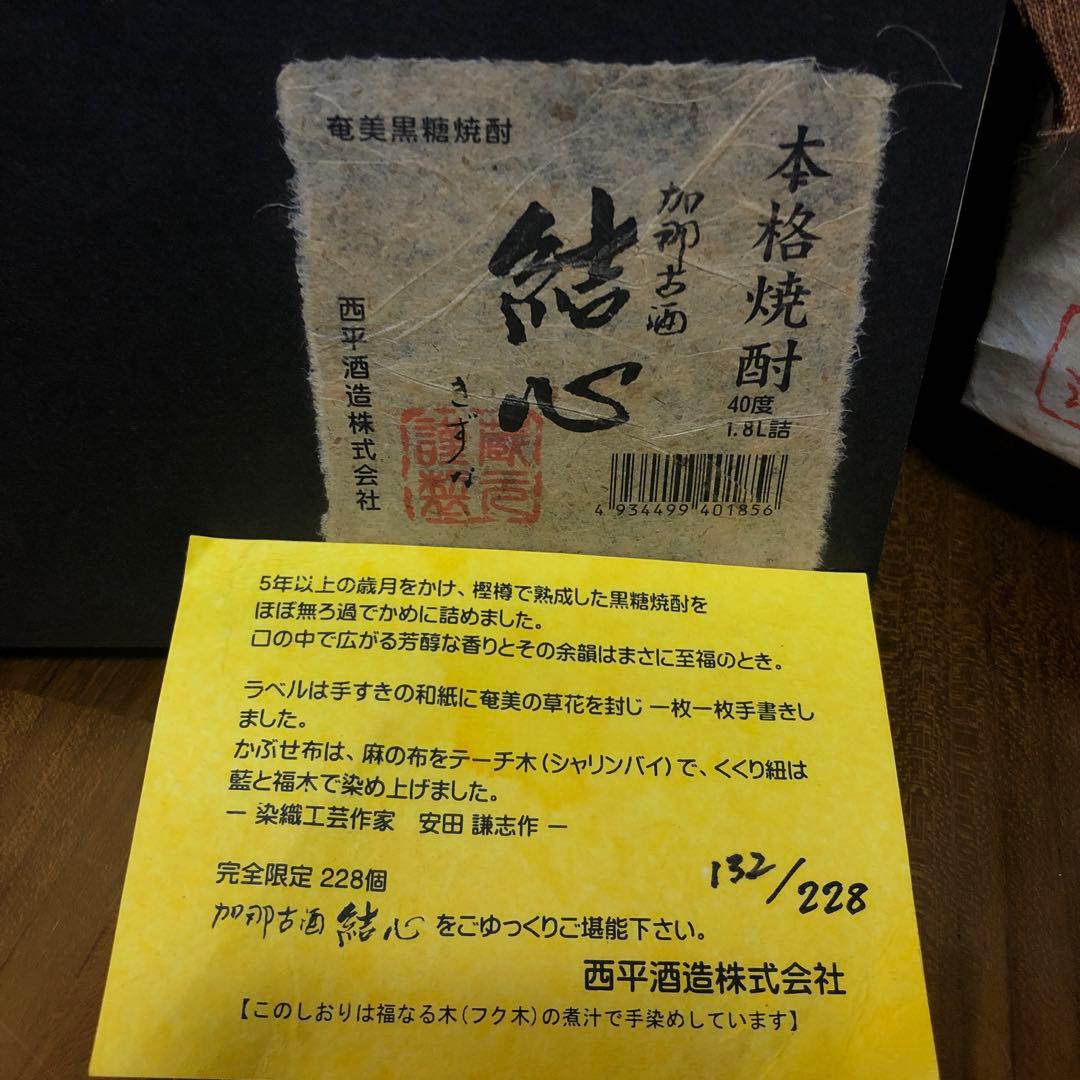 奄美黒糖焼酎
本格焼酎
加那古酒
結心
きずな
蔵元
謹製
西平酒造株式会社
40度
1.8L詰
4 934499 401856
5年以上の歳月をかけ、樫樽で熟成した黒糖焼酎を
ほぼ無ろ過でかめに詰めました。
口の中で広がる芳醇な香りとその余韻はまさに至福のとき。
ラベルは手すきの和紙に奄美の草花を封じ一枚一枚手書きし
ました。
かぶせ布は、麻の布をテーチ木(シャリンバイ)で、くくり紐は
藍と福木で染め上げました。
ー 染織工芸作家 安田 謙志作 ー
完全限定 228個
132/228
加那古酒 結心 をごゆっくりご堪能下さい。
西平酒造株式会社
【このしおりは福なる木(フク木)の煮汁で手染めしています】